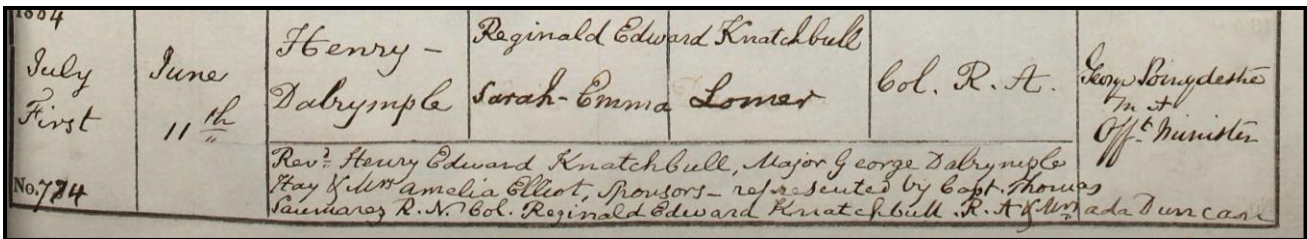 1864
July
First
No.784
June
11th
Henry -
Dalrymple
Reginald Edward Knatchbull
Sarah - Emma Lomer
Col. R. A.
George Poingdestre
M A
Offt. Minister
Revd. Henry Edward Knatchbull, Major George Dalrymple
Hay & Mrs Amelia Elliot, Sponsors - represented by Capt. Thomas
Saumarez R. N. Col. Reginald Edward Knatchbull. R. A & Mrs Ada Duncan